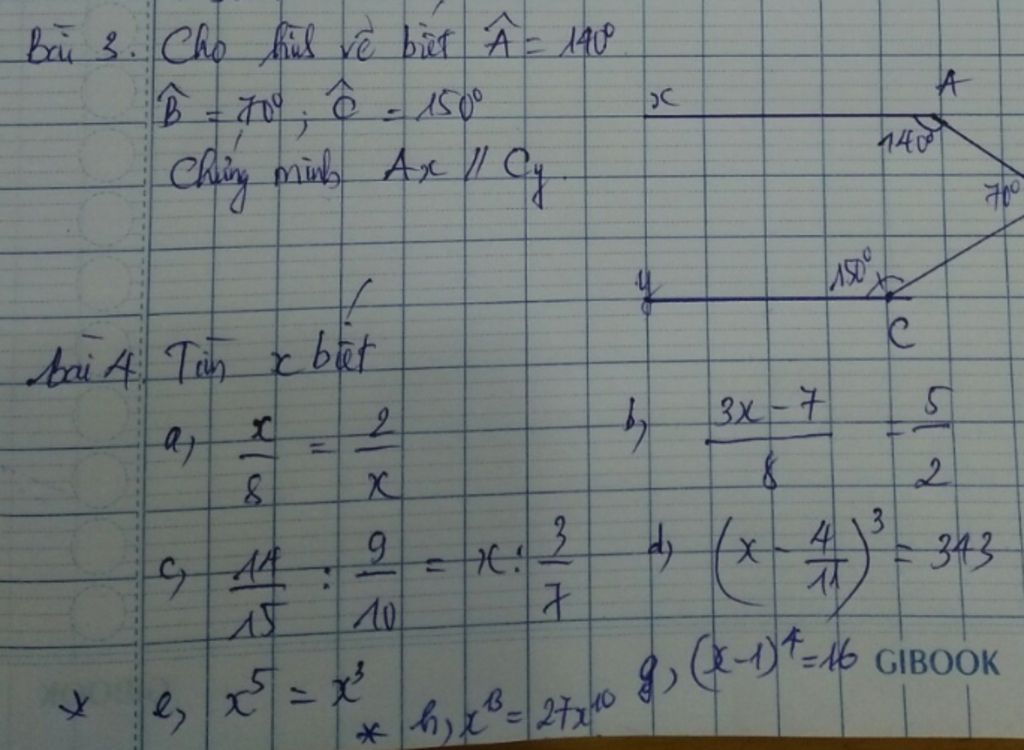 Bài 3. Cho hình vẽ biết Â = 140°
B̂ = 70° ; Ĉ = 150°
Chứng minh Ax // Cy.
x A
140°
70°
150°
y
C
Bài 4 Tìm x biết
a, x/8 = 2/x b, (3x - 7)/8 = 5/2
c, 14/15 : 9/10 = x : 3/7 d, (x - 4/11)³ = 343
* e, x⁵ = x³ * h, x¹³ = 27x¹⁰ g, (x-1)⁴ = 16 GIBOOK